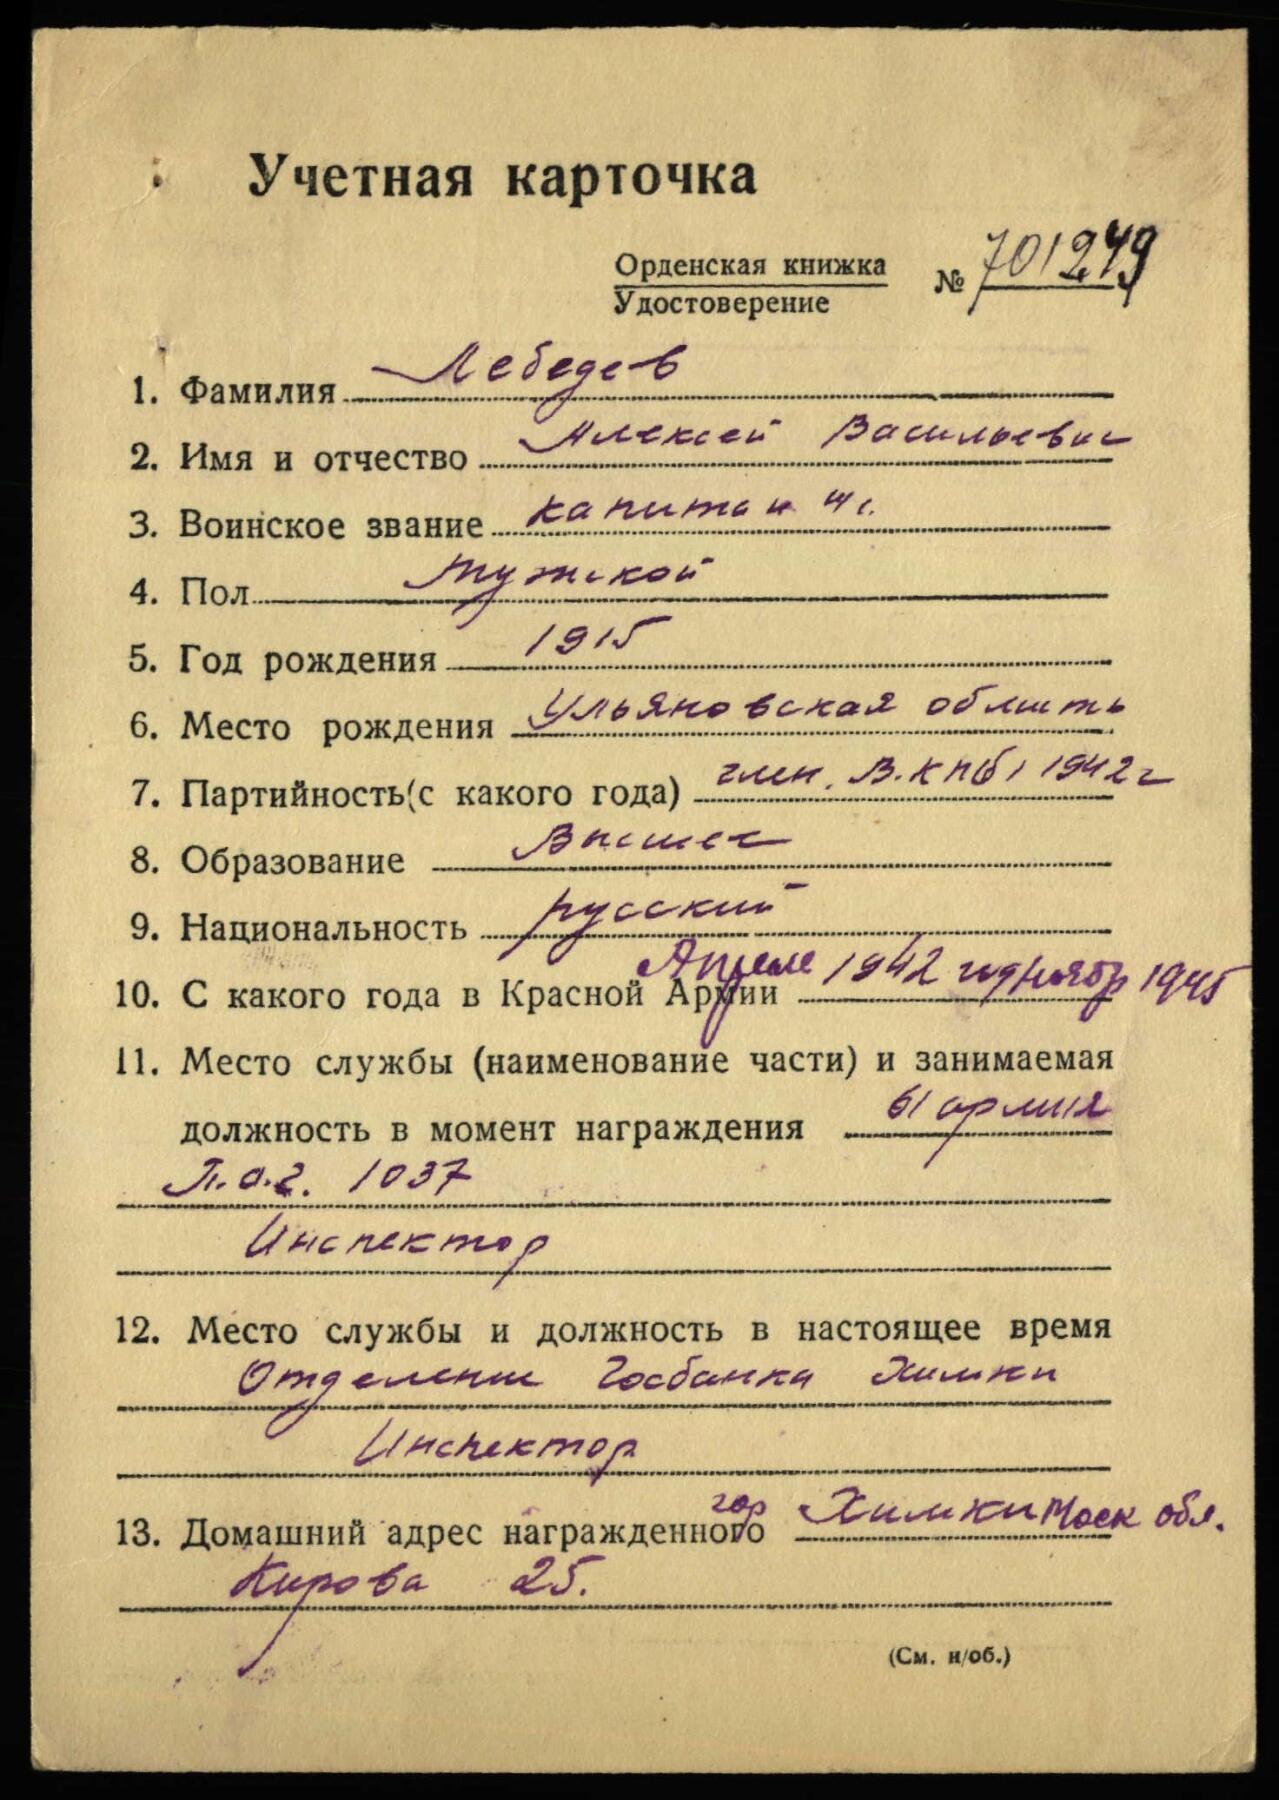 Учетная карточка
Орденская книжка
Удостоверение
№ 701249
1. Фамилия Лебедев
2. Имя и отчество Алексей Васильевич
3. Воинское звание капитан
4. Пол Мужской
5. Год рождения 1915
6. Место рождения Ульяновская область
7. Партийность (с какого года) член. В.КП(б) 1942г
8. Образование Высшее
9. Национальность русский
10. С какого года в Красной Армии Апреле 1942 год Ноябр 1945
11. Место службы (наименование части) и занимаемая
должность в момент награждения 61 армия
1037
Инспектор
12. Место службы и должность в настоящее время
Отделение Госбанка Химки
Инспектор
13. Домашний адрес награжденного гор Химки Моск обл.
Кирова 25.
(См. н/об.)